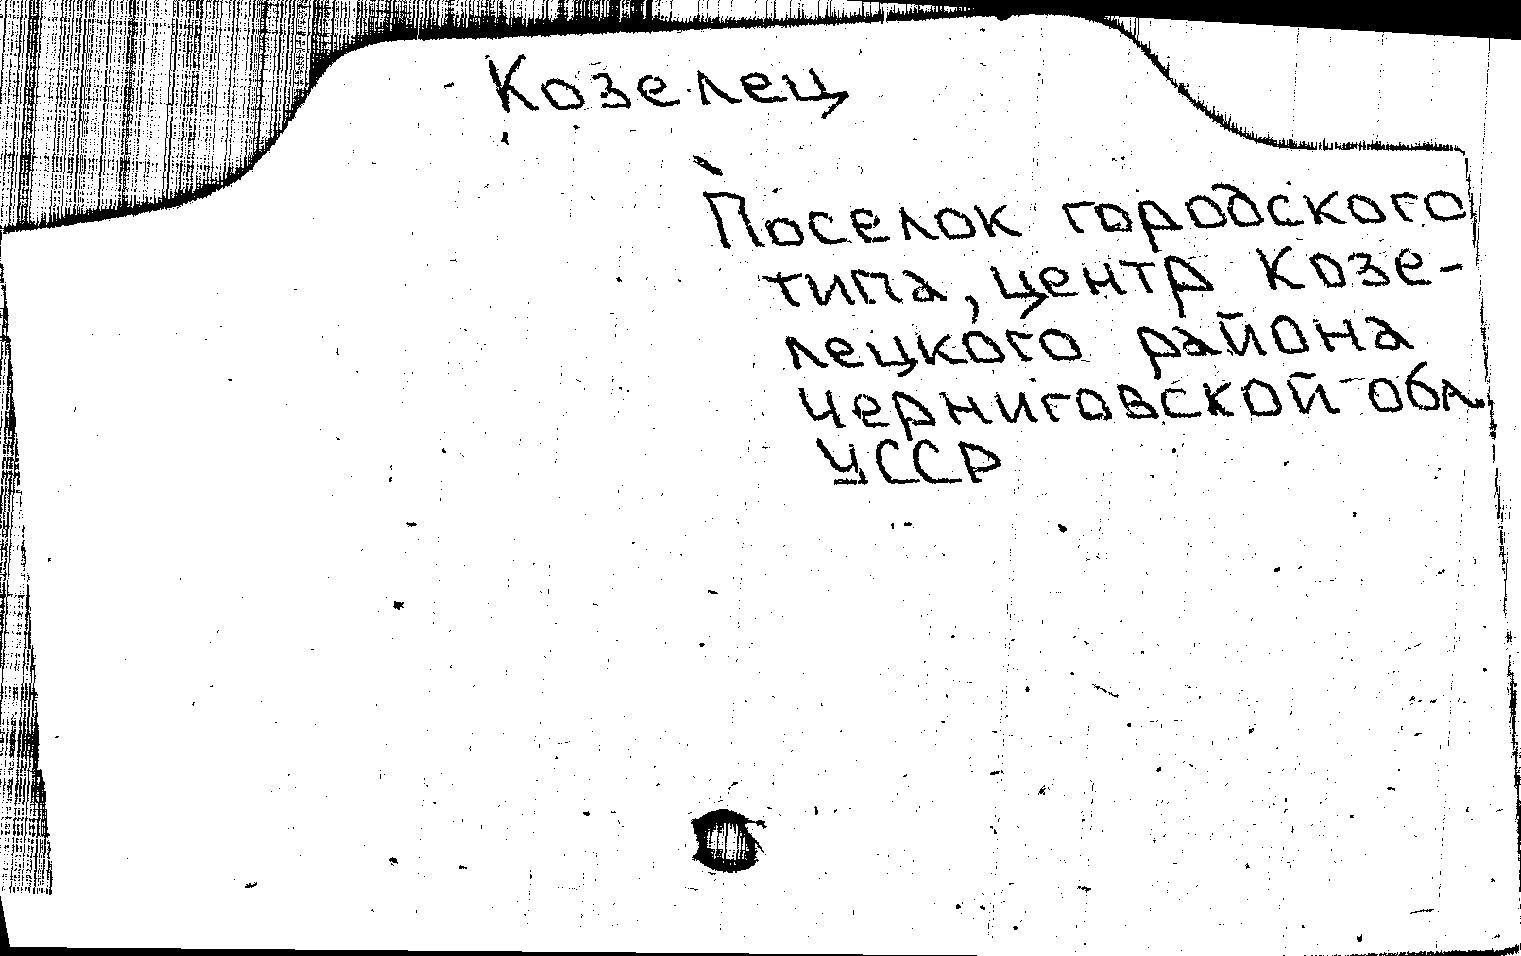 Козелец
Поселок городского
типа, центр Козе-
лецкого района
Черниговской обл.
УССР